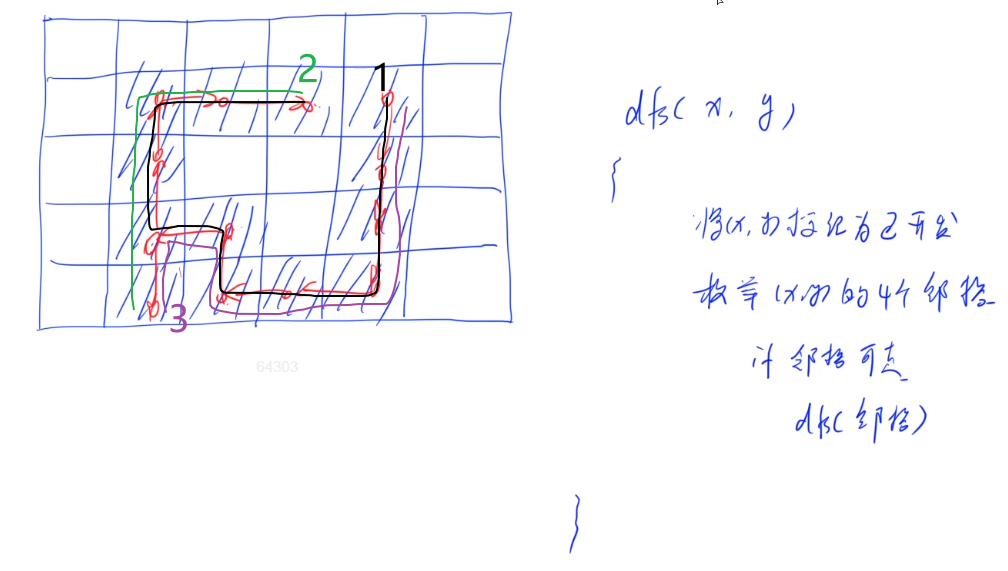 2
1
3
64303
dfs( x, y )
{
将(x,y)标记为已开发
枚举(x,y)的4个邻格
计 邻格可走
dfs(邻格)
}